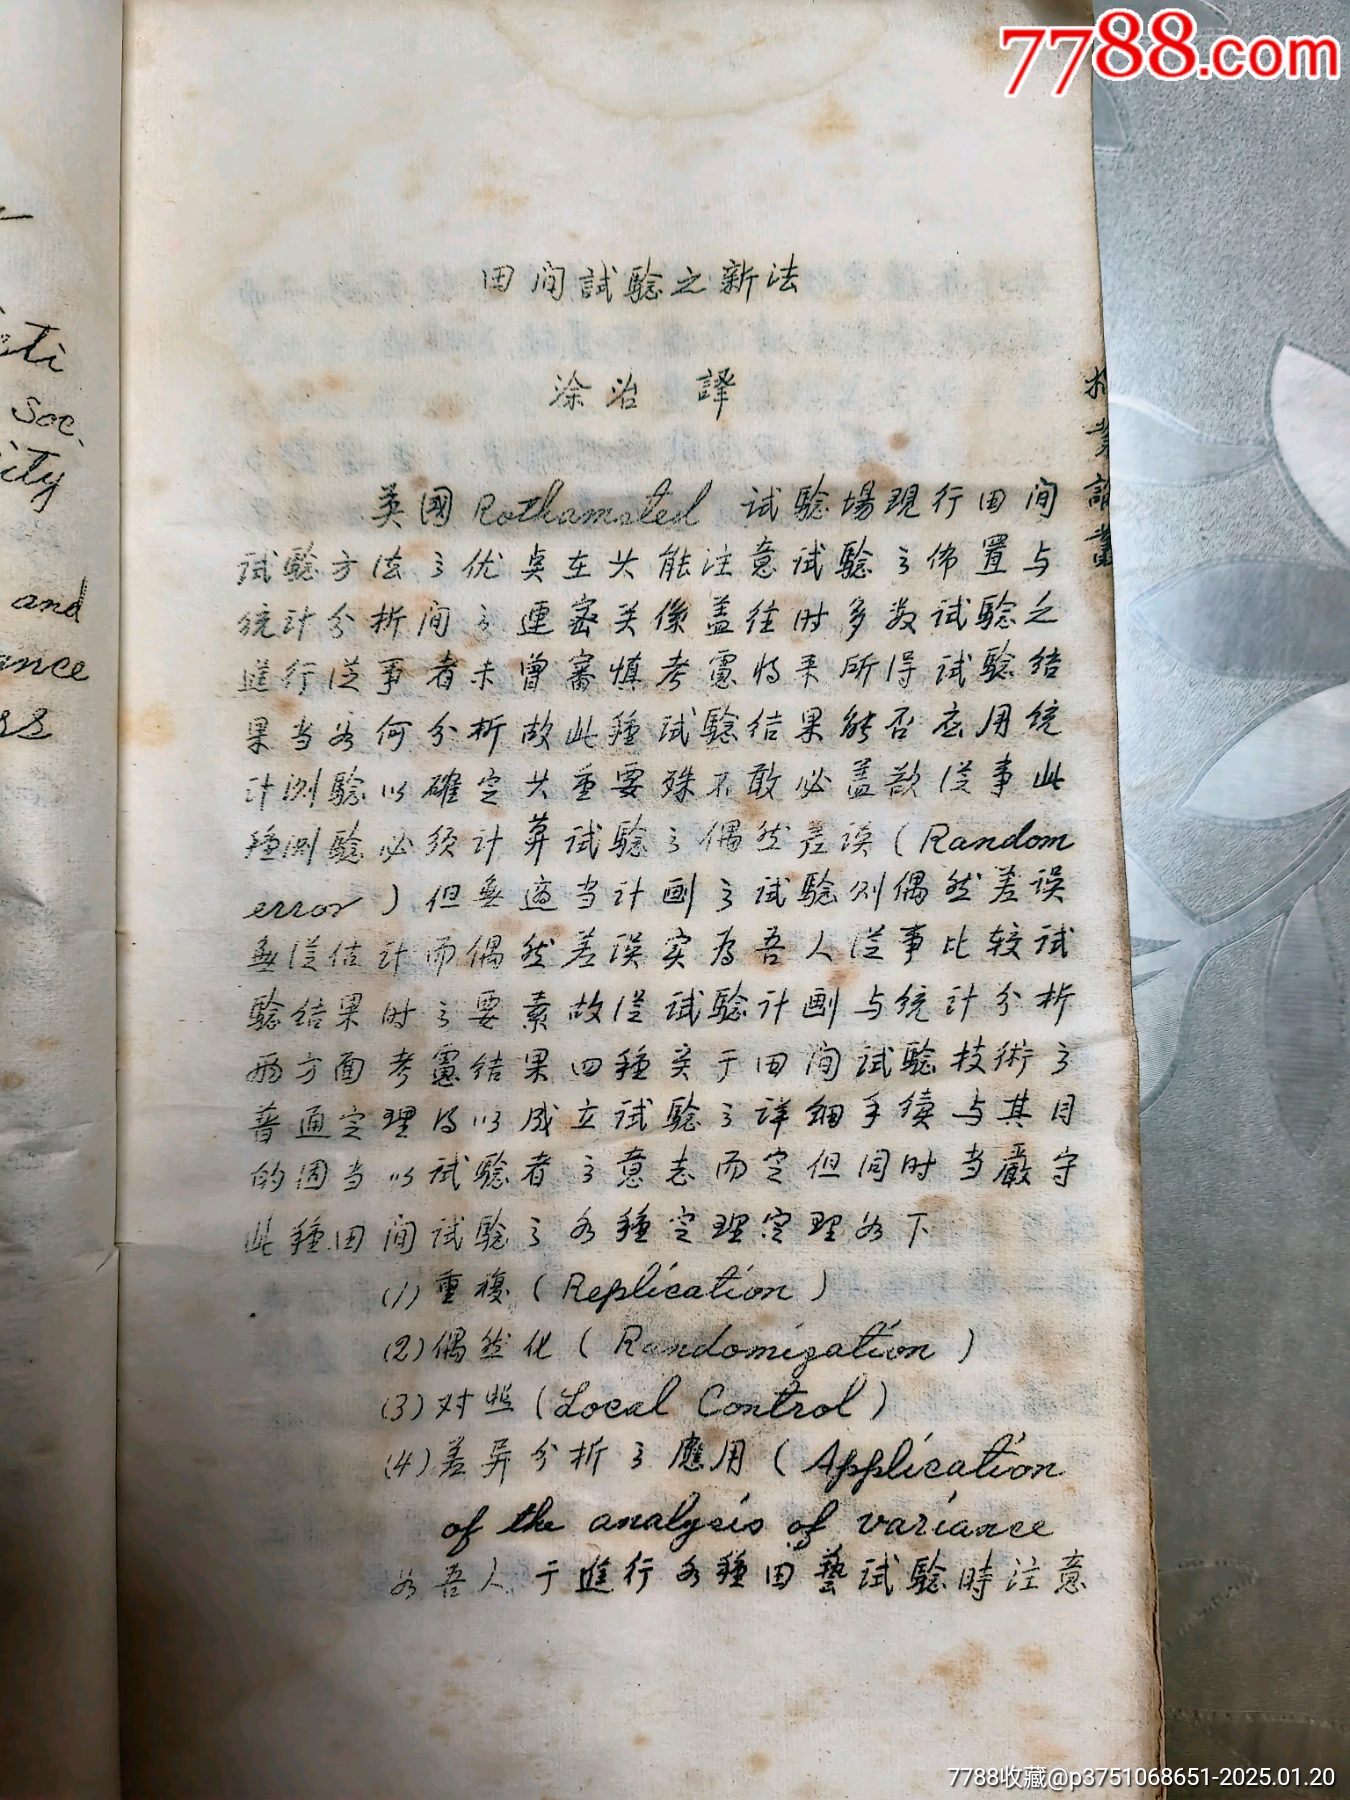 7788.com
田间試驗之新法
涂治 譯
英國 Rothamsted 试驗場現行田间
试驗方法之优臭在其能注意试驗之佈置与
统计分析间之連密关係盖往时多数试驗之
進行従事者未曾審慎考慮将来所得试驗结
果当为何分析故此種试驗结果能否应用统
计测驗以確定其重要殊不敢必盖欲従事此
種测驗必须计算试驗之偶然差误(Random
error)但無適当计劃之试驗则偶然差误
無従估计而偶然差误实為吾人従事比较试
驗结果时之要素故従试驗计劃与统计分析
两方面考慮结果四種关于田间试驗技術之
普通定理得以成立试驗之详细手续与其目
的固当以试驗者之意志而定但同时当嚴守
此種田间试驗之各種定理定理如下
(1)重複(Replication)
(2)偶然化(Randomization)
(3)对照(Local Control)
(4)差异分析之應用(Application
of the analysis of variance
如吾人于進行各種田藝试驗時注意
Soc.
and
7788收藏@p3751068651-2025.01.20